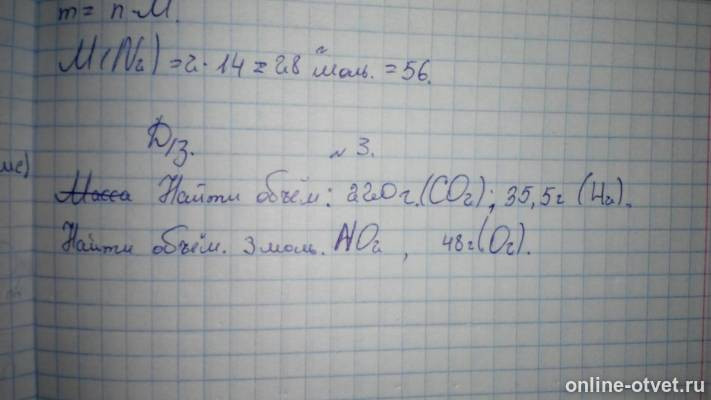 m = n·M.
M(N₂) = 2·14 = 28 г/моль. = 56.
Д/з. №3.
Масса Найти объём: 220г.(CO₂); 35,5г (H₂).
Найти объём. 3 моль. NO₂, 48г(O₂).
online-otvet.ru